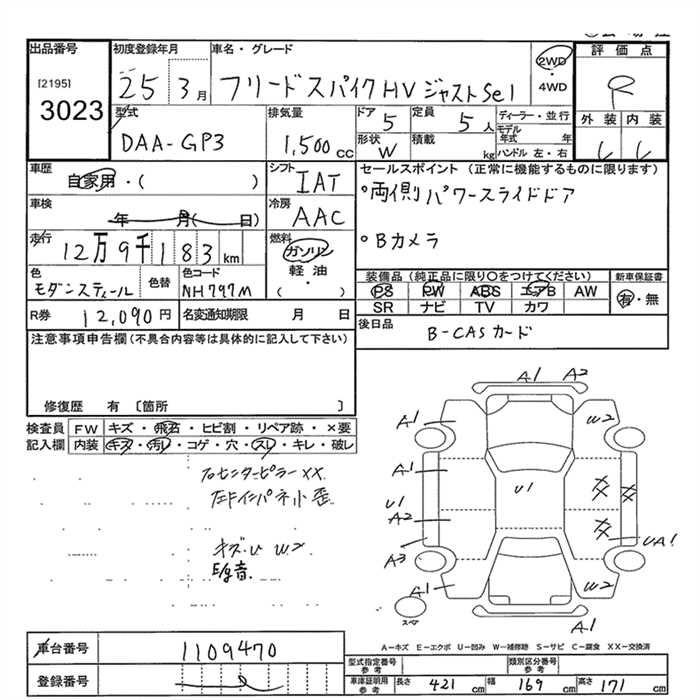 出品番号
[2195]
3023
初度登録年月
25 3月
車名・グレード
フリードスパイクHV ジャストSel
2WD
・
4WD
評価点
R
外装 内装
型式
DAA-GP3
排気量
1,500cc
ドア 5
定員 5人
形状 W
積載 kg
ディーラー・並行
モデル年式 年
ハンドル 左・右
車歴
自家用・( )
シフト
IAT
車検
年 月( 日)
冷房
AAC
走行
12万9千183km
燃料
ガソリン
軽・油
( ・ )
色
モダンスティール
色替
色コード
NH797M
R券 12,090円
名変通知期限 月 日
セールスポイント(正常に機能するものに限ります)
○両側パワースライドドア
○Bカメラ
装備品(純正品に限り○をつけてください)
PS PW ABS エアB AW
SR ナビ TV カワ
新車保証書
有・無
後日品
B-CASカード
注意事項申告欄(不具合内容等は具体的に記入して下さい)
修復歴 有 〔箇所 〕
検査員記入欄
FW キズ・飛石・ヒビ割・リペア跡・×要
内装 キズ・汚レ・コゲ・穴・スレ・キレ・破レ
右センターピラーXX
左リヤインパネ小歪
キズ・U W2
E/g音.
A1 A2
A1 W2
A1
U1
A2
U1
A3 UA1
A1 W2
スペア
A1
A-キズ E-エクボ U-凹み W-補修跡 S-サビ C-腐食 XX-交換済
車台番号 1109470
登録番号
型式指定番号 参考
類別区分番号 参考
車庫証明用 参考
長さ 421cm 幅 169cm 高さ 171cm